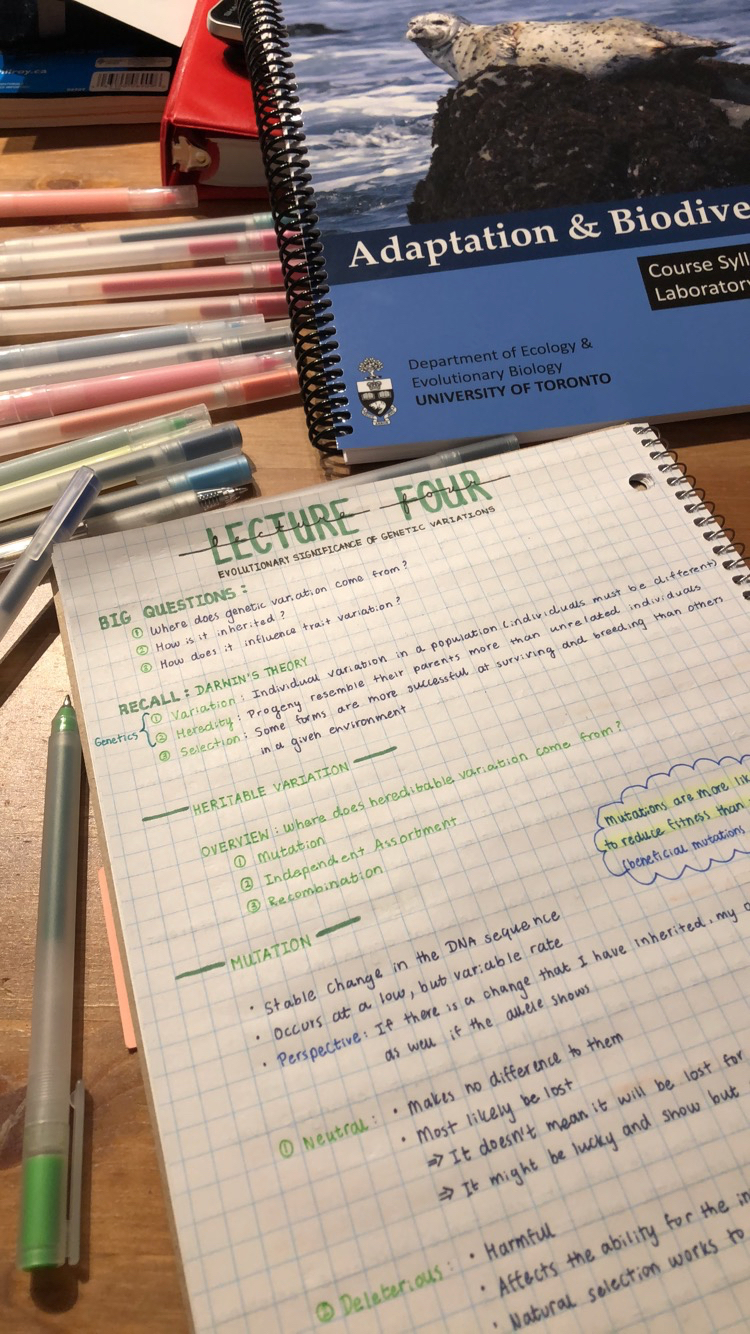 Adaptation & Biodive
Course Syll
Laboratory
Department of Ecology &
Evolutionary Biology
UNIVERSITY OF TORONTO
LECTURE FOUR
lecture four
EVOLUTIONARY SIGNIFICANCE OF GENETIC VARIATIONS
BIG QUESTIONS:
① Where does genetic variation come from?
② How is it inherited?
③ How does it influence trait variation?
RECALL: DARWIN'S THEORY
Genetics { ① Variation: Individual variation in a population (individuals must be different)
② Heredity: Progeny resemble their parents more than unrelated individuals
③ Selection: Some forms are more successful at surviving and breeding than others
in a given environment
HERITABLE VARIATION
OVERVIEW: Where does hereditable variation come from?
① Mutation
② Independent Assortment
③ Recombination
Mutations are more li
to reduce fitness than
(beneficial mutations
MUTATION
• Stable change in the DNA sequence
• Occurs at a low, but variable rate
• Perspective: If there is a change that I have inherited, my
as well if the allele shows
① Neutral: • Makes no difference to them
• Most likely be lost
⇒ It doesn't mean it will be lost for
⇒ It might be lucky and show but
② Deleterious: • Harmful
• Affects the ability for the in
• Natural selection works to